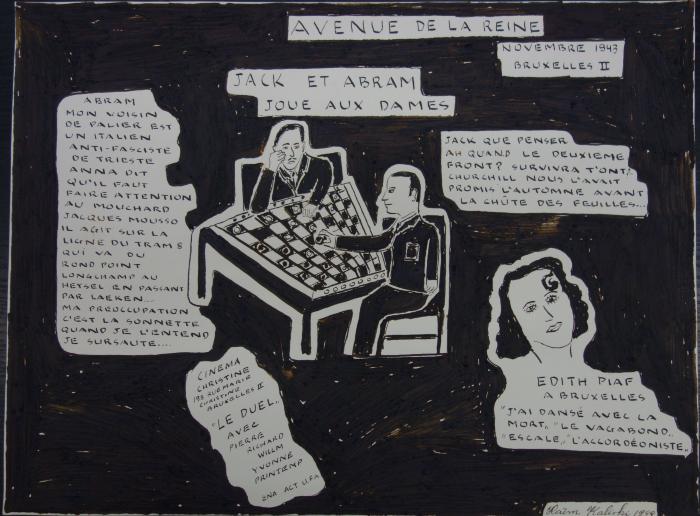 AVENUE DE LA REINE
NOVEMBRE 1943
BRUXELLES II
JACK ET ABRAM
JOUE AUX DAMES
ABRAM
MON VOISIN
DE PALIER EST
UN ITALIEN
ANTI-FASCISTE
DE TRIESTE
ANNA DIT
QU'IL FAUT
FAIRE ATTENTION
AU MOUCHARD
JACQUES MOUSSO
IL AGIT SUR LA
LIGNE DU TRAM 8
QUI VA DU
ROND POINT
LONGCHAMP AU
HEYSEL EN PASSANT
PAR LAEKEN...
MA PRÉOCCUPATION
C'EST LA SONNETTE
QUAND JE L'ENTEND
JE SURSAUTE....
JACK QUE PENSER
AH QUAND LE DEUXIEME
FRONT? SURVIVRA T'ONT?
CHURCHILL NOUS L'AVAIT
PROMIS L'AUTOMNE AVANT
LA CHÛTE DES FEUILLES...
CINEMA
CHRISTINE
RUE MARIE
CHRISTINE
BRUXELLES II
"LE DUEL"
AVEC
PIERRE
RICHARD
WILLM
YVONNE
PRINTEMP
ENA ACT U.F.A
EDITH PIAF
A BRUXELLES
"J'AI DANSÉ AVEC LA
MORT" "LE VAGABOND"
"ESCALE" "L'ACCORDÉONISTE"
Kaliski